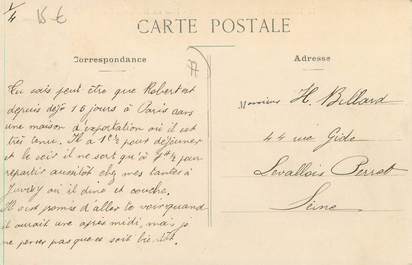 1/4 15 €
CARTE POSTALE
Correspondance
Adresse
Tu sais peut être que Robert est
depuis déjà 15 jours à Paris dans
une maison d'exportation où il est
très tenu. Il a 1h½ pour déjeuner
et le soir il ne sort qu'à 7h½ pour
repartir aussitôt chez mes tantes à
Juvisy où il dine et couche.
Il m'a promis d'aller te voir quand
il aurait une après midi, mais je
ne pense pas que ce soit bientôt.
Monsieur H. Billard
44 rue Gide
Levallois Perret
Seine